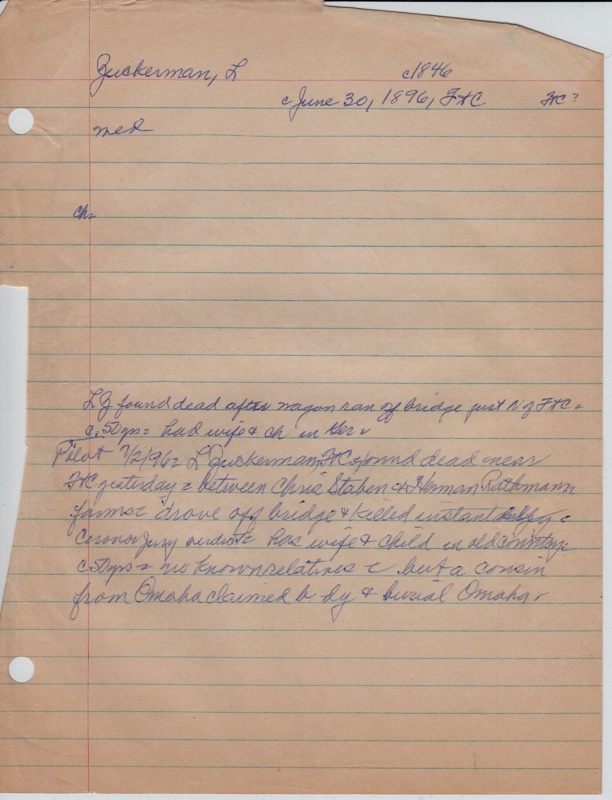 Zuckerman, L c1846
c June 30, 1896, FtC FtC?
med
ch-
LZ found dead after wagon ran off bridge just N of FtC -
c. 50 yrs = had wife & ch in Ger -
Pilot 7/2/96 = L Zuckerman, FtC found dead near
FtC yesterday = between Chris Staben & Herman Rathmann
farms = drove off bridge & killed instantly =
Coronor Jury verdict = has wife & child in old country =
c 50 yrs = no known relatives = but a cousin
from Omaha claimed body & burial Omaha -